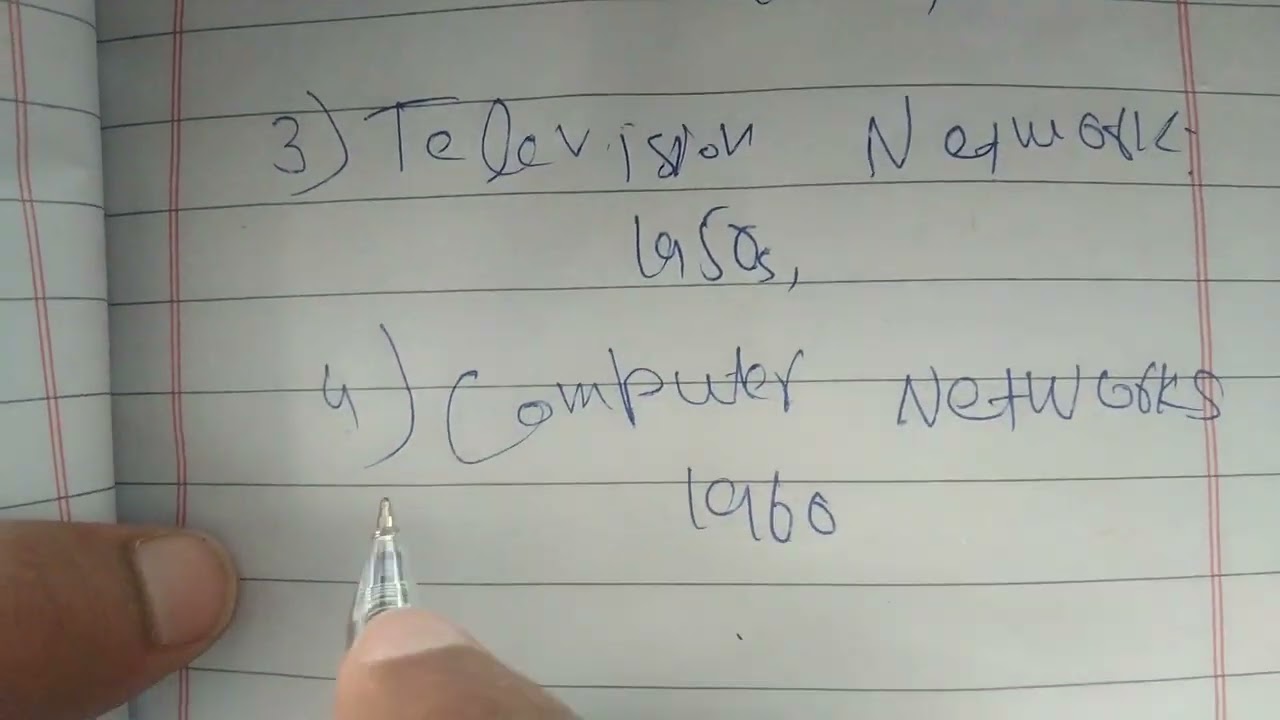 3) Television Network
1950s,
4) Computer Networks
1960